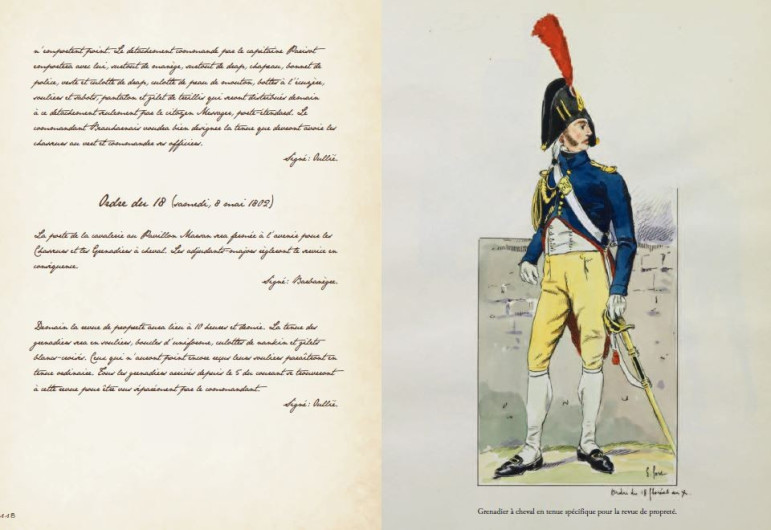 n'emportent point. Le détachement commandé par le capitaine Parisot
emportera avec lui, surtout de manège, surtout de drap, chapeau, bonnet de
police, veste et culotte de drap, culotte de peau de mouton, bottes à l'écuyère,
souliers et sabots, pantalon et gilet de treillis qui seront distribués demain
à ce détachement seulement par le citoyen Messager, porte-étendard. Le
commandant Beauharnais voudra bien désigner la tenue que devront avoir les
chasseurs au vert et commander ses officiers.
Signé: Oullié.
Ordre du 18 (samedi, 8 mai 1802)
La porte de la cavalerie au Pavillon Marsan sera fermée à l'avenir pour les
Chasseurs et les Grenadiers à cheval. Les adjudants-majors régleront le service en
conséquence.
Signé: Barbanègre.
Demain la revue de propreté aura lieu à 10 heures et demie. La tenue des
grenadiers sera en souliers, boucles d'uniforme, culottes de nankin et gilets
blancs croisés. Ceux qui n'auront point encore reçus leurs souliers paraîtront en
tenue ordinaire. Tous les grenadiers arrivés depuis le 5 du courant se trouveront
à cette revue pour être vus séparément par le commandant.
Signé: Oullié.
448
Ordre du 18 floréal an X.
Grenadier à cheval en tenue spécifique pour la revue de propreté.